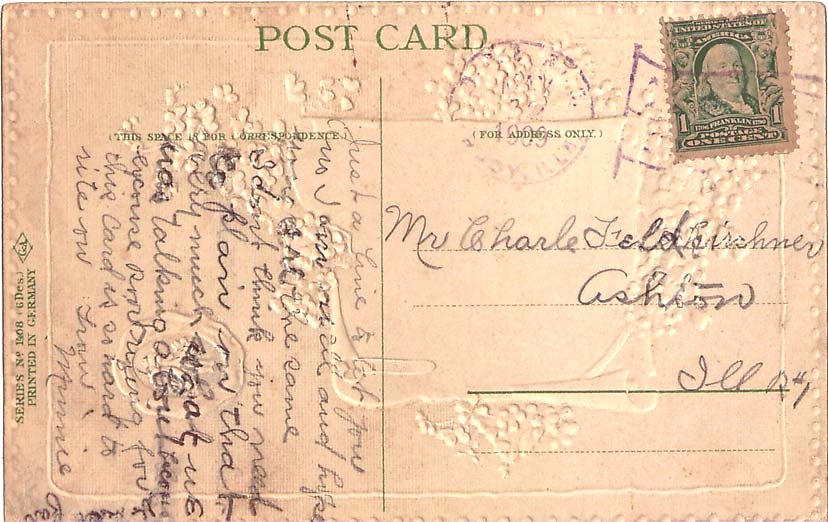 POST CARD
(THIS SPACE IS FOR CORRESPONDENCE.
(FOR ADDRESS ONLY.)
UNITED STATES OF
AMERICA
1 FRANKLIN 1
POSTAGE
ONE CENT
1909
Mr Charle Feldkirchner
Ashton
Ill
Just a line to let you
now I am well and hope
you are the same
I don't think you need
be plain on that
very much what we
was talking about
excuse
this card is so hard to
rite on from
Minnie
SERIES No 1808 (6 Des.)
PRINTED IN GERMANY